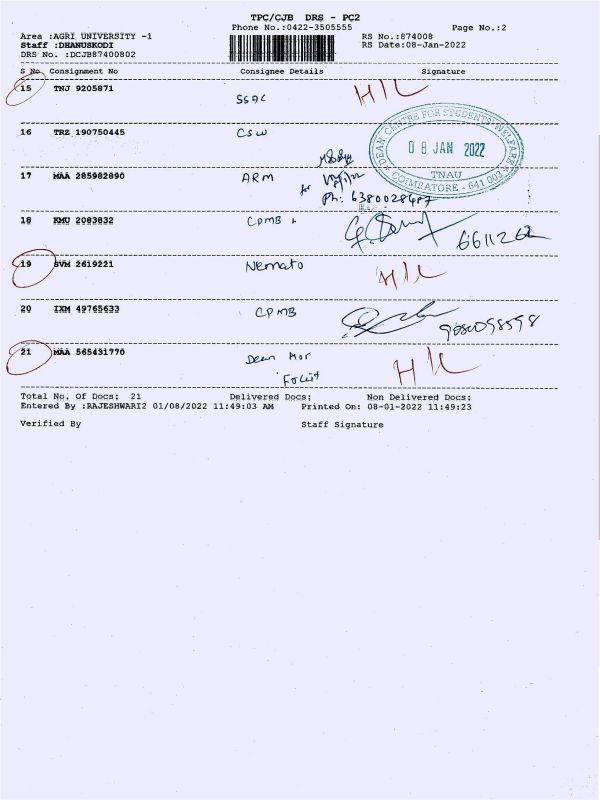 TPC/CJB DRS - PC2
Phone No.:0422-3505555 Page No.:2
Area :AGRI UNIVERSITY -1 RS No.:874008
Staff :DHANUSKODI RS Date:08-Jan-2022
DRS No. :DCJB87400802
S No Consignment No Consignee Details Signature
15 TNJ 9205871 SSAC H/L
16 TRZ 190750445 CSW
DEAN CENTRE FOR STUDENTS WELFARE
08 JAN 2022
TNAU
COIMBATORE - 641 003
17 MAA 285982890 ARM for
Ph: 6380028487
18 KMU 2083832 CPMB 6611262
19 SVM 2619221 Nemato H/L
20 IXM 49765633 CPMB
21 MAA 565431770 Dean Hor H/L
Total No. Of Docs: 21 Delivered Docs: Non Delivered Docs:
Entered By :RAJESHWARI2 01/08/2022 11:49:03 AM Printed On: 08-01-2022 11:49:23
Verified By Staff Signature